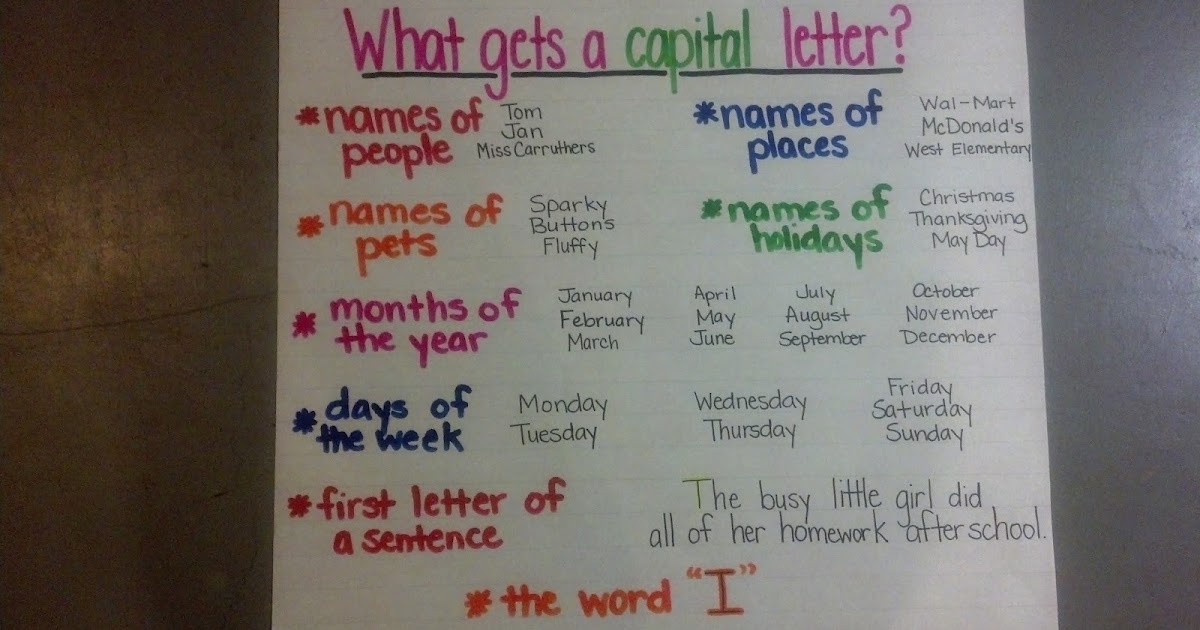 What gets a capital letter?
*names of people
Tom
Jan
Miss Carruthers
*names of places
Wal-Mart
McDonald's
West Elementary
*names of pets
Sparky
Buttons
Fluffy
*names of holidays
Christmas
Thanksgiving
May Day
*months of the year
January
February
March
April
May
June
July
August
September
October
November
December
*days of the week
Monday
Tuesday
Wednesday
Thursday
Friday
Saturday
Sunday
*first letter of a sentence
The busy little girl did
all of her homework after school.
*the word "I"